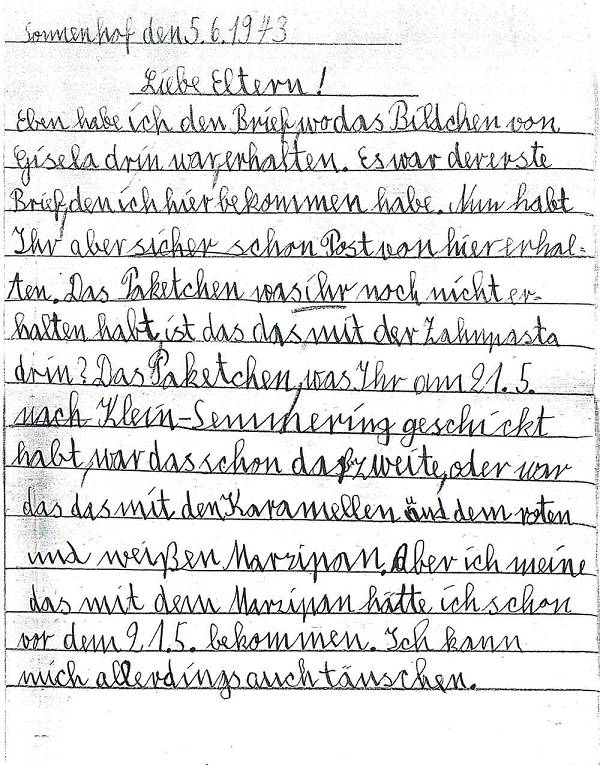 Sonnenhof den 5.6.1943
Liebe Eltern!
Eben habe ich den Brief, wo das Bildchen von
Gisela drin war, erhalten. Es war der erste
Brief, den ich hier bekommen habe. Nun habt
Ihr aber sicher schon Post von hier erhal=
ten. Das Paketchen was ihr noch nicht er-
halten habt, ist das das mit der Zahnpasta
drin? Das Paketchen, was Ihr am 21.5.
nach Klein-Semmering geschickt
habt, war das schon das zweite, oder war
das das mit den Karamellen und dem roten
und weißen Marzipan. Aber ich meine
das mit dem Marzipan hätte ich schon
vor dem 21.5. bekommen. Ich kann
mich allerdings auch täuschen.